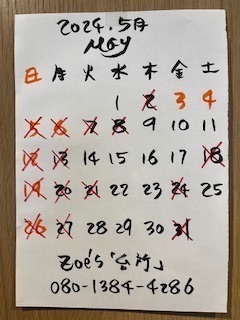 2024.5月
May
日 月 火 水 木 金 土
1 2 3 4
5 6 7 8 9 10 11
12 13 14 15 16 17 18
19 20 21 22 23 24 25
26 27 28 29 30 31
Zoe's「台所」
080-1384-4286